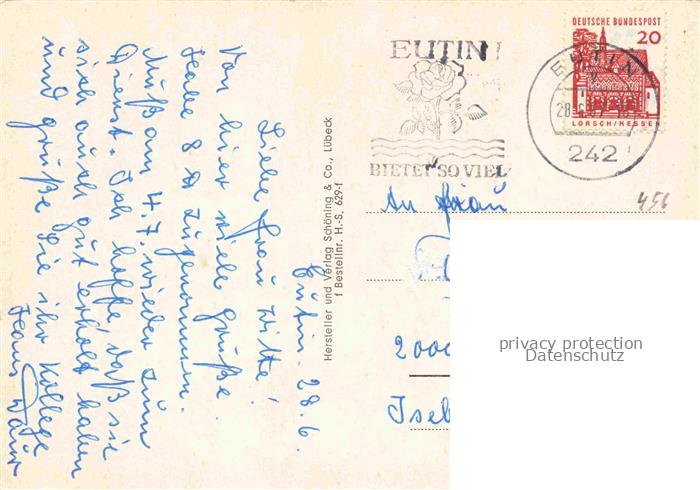 Eutin. 28.6.
Liebe Frau Witte!
Von hier viele Grüße.
Habe 8 ℔ zugenommen.
Muß am 4.7. wieder zum
Dienst. Ich hoffe daß sie
sich auch gut erholt haben
und grüße Sie ihr Kollege
Hans
Hersteller und Verlag Schöning & Co., Lübeck
f Bestellnr. H.-S. 629-f
EUTIN!
BIETET SO VIEL
DEUTSCHE BUNDESPOST
20
LORSCH/HESSEN
EUTIN
242
456
An Frau
2000
Iseb
privacy protection
Datenschutz